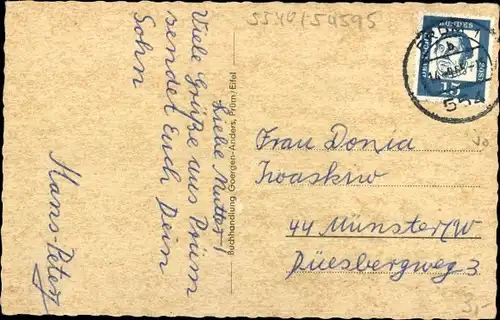 5540/54595
Liebe Mutter!
Viele Grüße aus Prüm
sendet Euch Dein
Sohn
Hans-Peter
Buchhandlung Goergen-Anders, Prüm/Eifel
Frau Donia
Iwaskiw
44 Münster/W
Düesbergweg 3
15
554
3,-